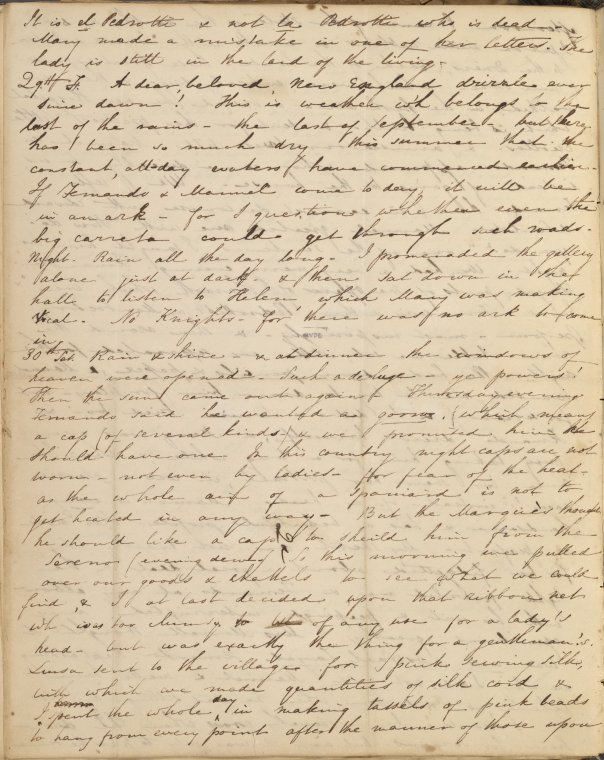 It is el Pedrotte & not la Pedrotte who is dead
Mary made a mistake in one of her letters. The
lady is still in the land of the living.
29th F. A dear, beloved, New England drizzle ever
since dawn! This is weather wh. belongs to the
last of the rains - the last of September - but there
has been so much dry this summer that the
constant, all-day waters have commenced earlier.
If Fernando & Manuel come to day, it will be
in an ark - for I question whether even the
big carreta could get through such roads.
Night. Rain all the day long. I promenaded the gallery
alone just at dark & then sat down in the
hall to listen to Helen which Mary was making
vocal. No Knights - for there was no ark to come
in.
30th Sat. Rain & shine & at dinner the windows of
heaven were opened - Such a deluge - ye powers!
Then the sun came out again. Thursday evening
Fernando said he wanted a goom, (which means
a cap (of several kinds) & we promised him he
should have one. In this country night caps are not
worn - not even by ladies - for fear of the heat -
as the whole aim of a Spaniard is not to
get heated in any way - But the Marquis thought
he should like a cap to sheild him from the
Sereno (evening dew) So this morning we pulled
over our goods & chattels to see what we could
find, & I at last decided upon that ribbon net
wh was too clumsy to of any use for a lady's
head - but was exactly the thing for a gentleman's.
Luisa sent to the village for pink sewing silk,
with which we made quantities of silk cord &
I spent the whole day in making tassels of pink beads
to hang from every point after the manner of those upon